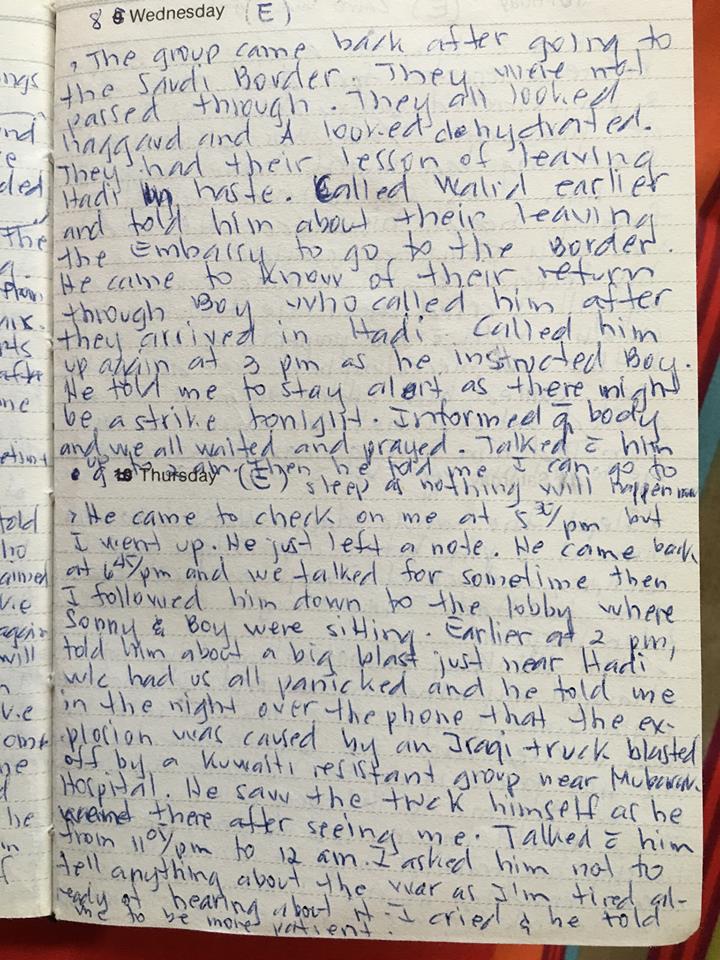 8 Wednesday (E)
, The group came back after going to
the Saudi Border. They were not
passed through. They all looked
haggard and A looked dehydrated.
They had their lesson of leaving
Hadi in haste. Called Walid earlier
and told him about their leaving
the Embassy to go to the Border.
He came to know of their return
through Boy who called him after
they arrived in Hadi. Called him
up again at 3 pm as he instructed Boy.
He told me to stay alert as there might
be a strike tonight. Informed body
and we all waited and prayed. Talked c̄ him
up to 2 am. Then he told me I can go to
9 Thursday (E) sleep as nothing will happen now
, He came to check on me at 5 30/pm but
I went up. He just left a note. He came back
at 6 45/pm and we talked for sometime then
I followed him down to the lobby where
Sonny & Boy were sitting. Earlier at 2 pm,
told him about a big blast just near Hadi
w/c had us all panicked and he told me
in the night over the phone that the ex-
plosion was caused by an Iraqi truck blasted
off by a Kuwaiti resistant group near Mubarak
Hospital. He saw the truck himself as he
went there after seeing me. Talked c̄ him
from 11 05/pm to 12 am. I asked him not to
tell anything about the war as I'm tired al-
ready of hearing about it. I cried & he told
me to be more patient.